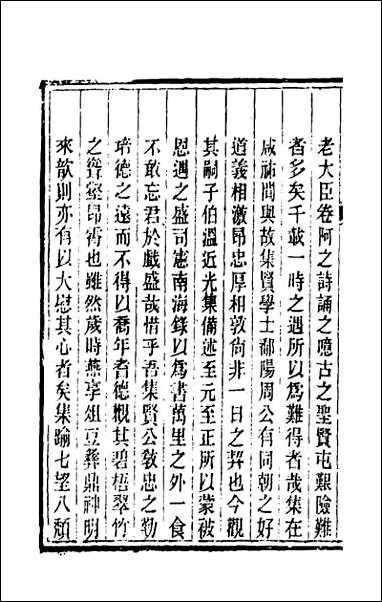 老大臣卷阿之詩誦之噫古之聖賢屯艱險難
者多矣千載一時之遇所以為難得者哉集在
咸祐間與故集賢學士鄱陽周公有同朝之好
道義相激昂忠厚相敦尚非一日之契也今觀
其嗣子伯溫近光集備述至元至正所以蒙被
恩遇之盛司憲南海錄以為書萬里之外一食
不敢忘君於戲盛哉惜乎吾集賢公敘忠之勤
培德之遠而不得以喬年耆德觀其碧梧翠竹
之聳壑昂霄也雖然歲時燕享俎豆彝鼎神明
來歆則亦有以大慰其心者矣集踰七望八頹